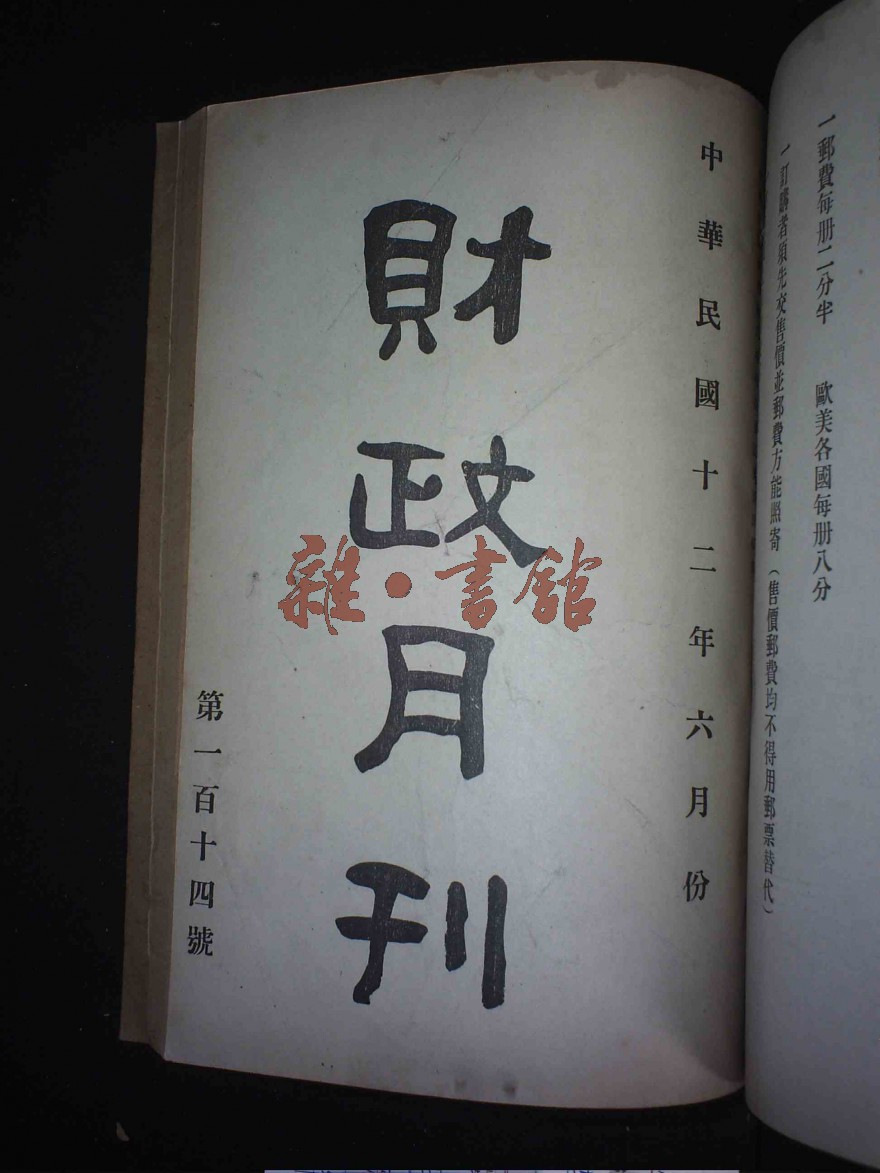 一郵費每册二分半　歐美各國每册八分
一訂購者須先交售價並郵費方能照寄（售價郵費均不得用郵票替代）
中華民國十二年六月份
財政月刊
第一百十四號
雜·書館